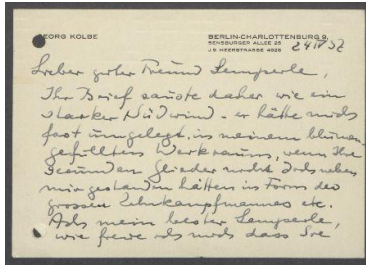 GEORG KOLBE
BERLIN-CHARLOTTENBURG 9,
SENSBURGER ALLEE 25
J 9 HEERSTRASSE 4028
24 IV 32
Lieber guter Freund Lemperle,
Ihr Brief sauste daher wie ein
starker Südwind - er hätte mich
fast umgelegt in meinem blumen-
gefüllten Werkraum, wenn Ihre
gesunden Glieder nicht doch neben
mir gestanden hätten in Form des
grossen Zehnkampfmannes etc.
Ach mein bester Lemperle,
wie freue ich mich dass Sie